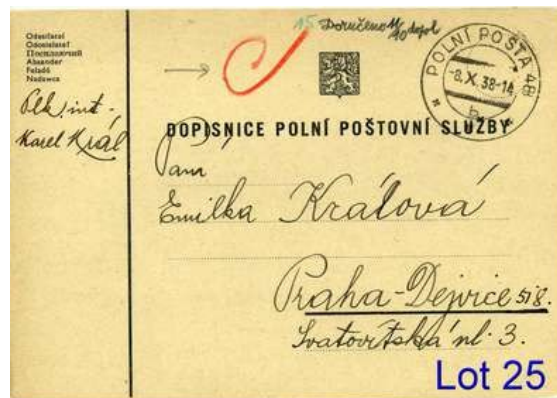 Odesílatel
Odosielateľ
Посилаючий
Absender
Feladó
Nadawca
Plk. int.
Karel Král
15 Doručeno 11/10 dopol
POLNÍ POŠTA 48
-8.X.38-14
b
DOPISNICE POLNÍ POŠTOVNÍ SLUŽBY
Paní
Emilka Králová
Praha-Dejvice 518.
Svatovítská ul. 3.
Lot 25